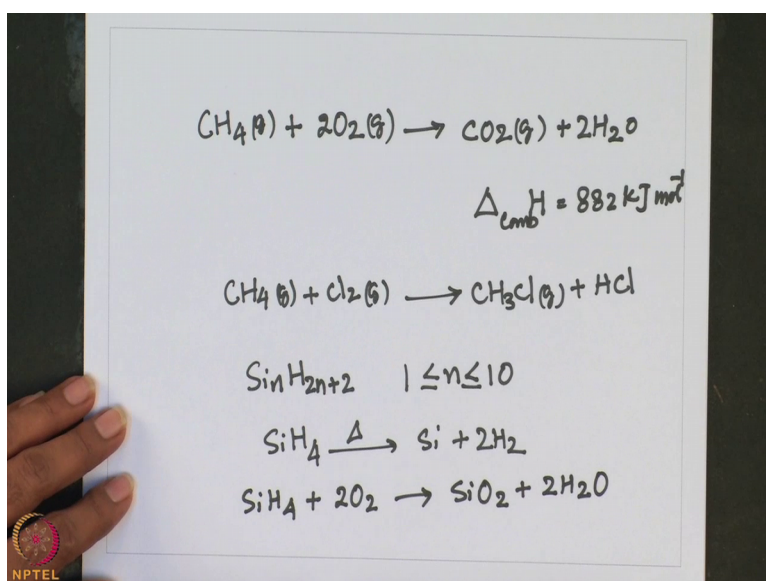 CH4(g) + 2O2(g) → CO2(g) + 2H2O
ΔcombH = 882 kJ mol⁻¹
CH4(g) + Cl2(g) → CH3Cl(g) + HCl
SinH2n+2 1 ≤ n ≤ 10
SiH4 Δ→ Si + 2H2
SiH4 + 2O2 → SiO2 + 2H2O
NPTEL